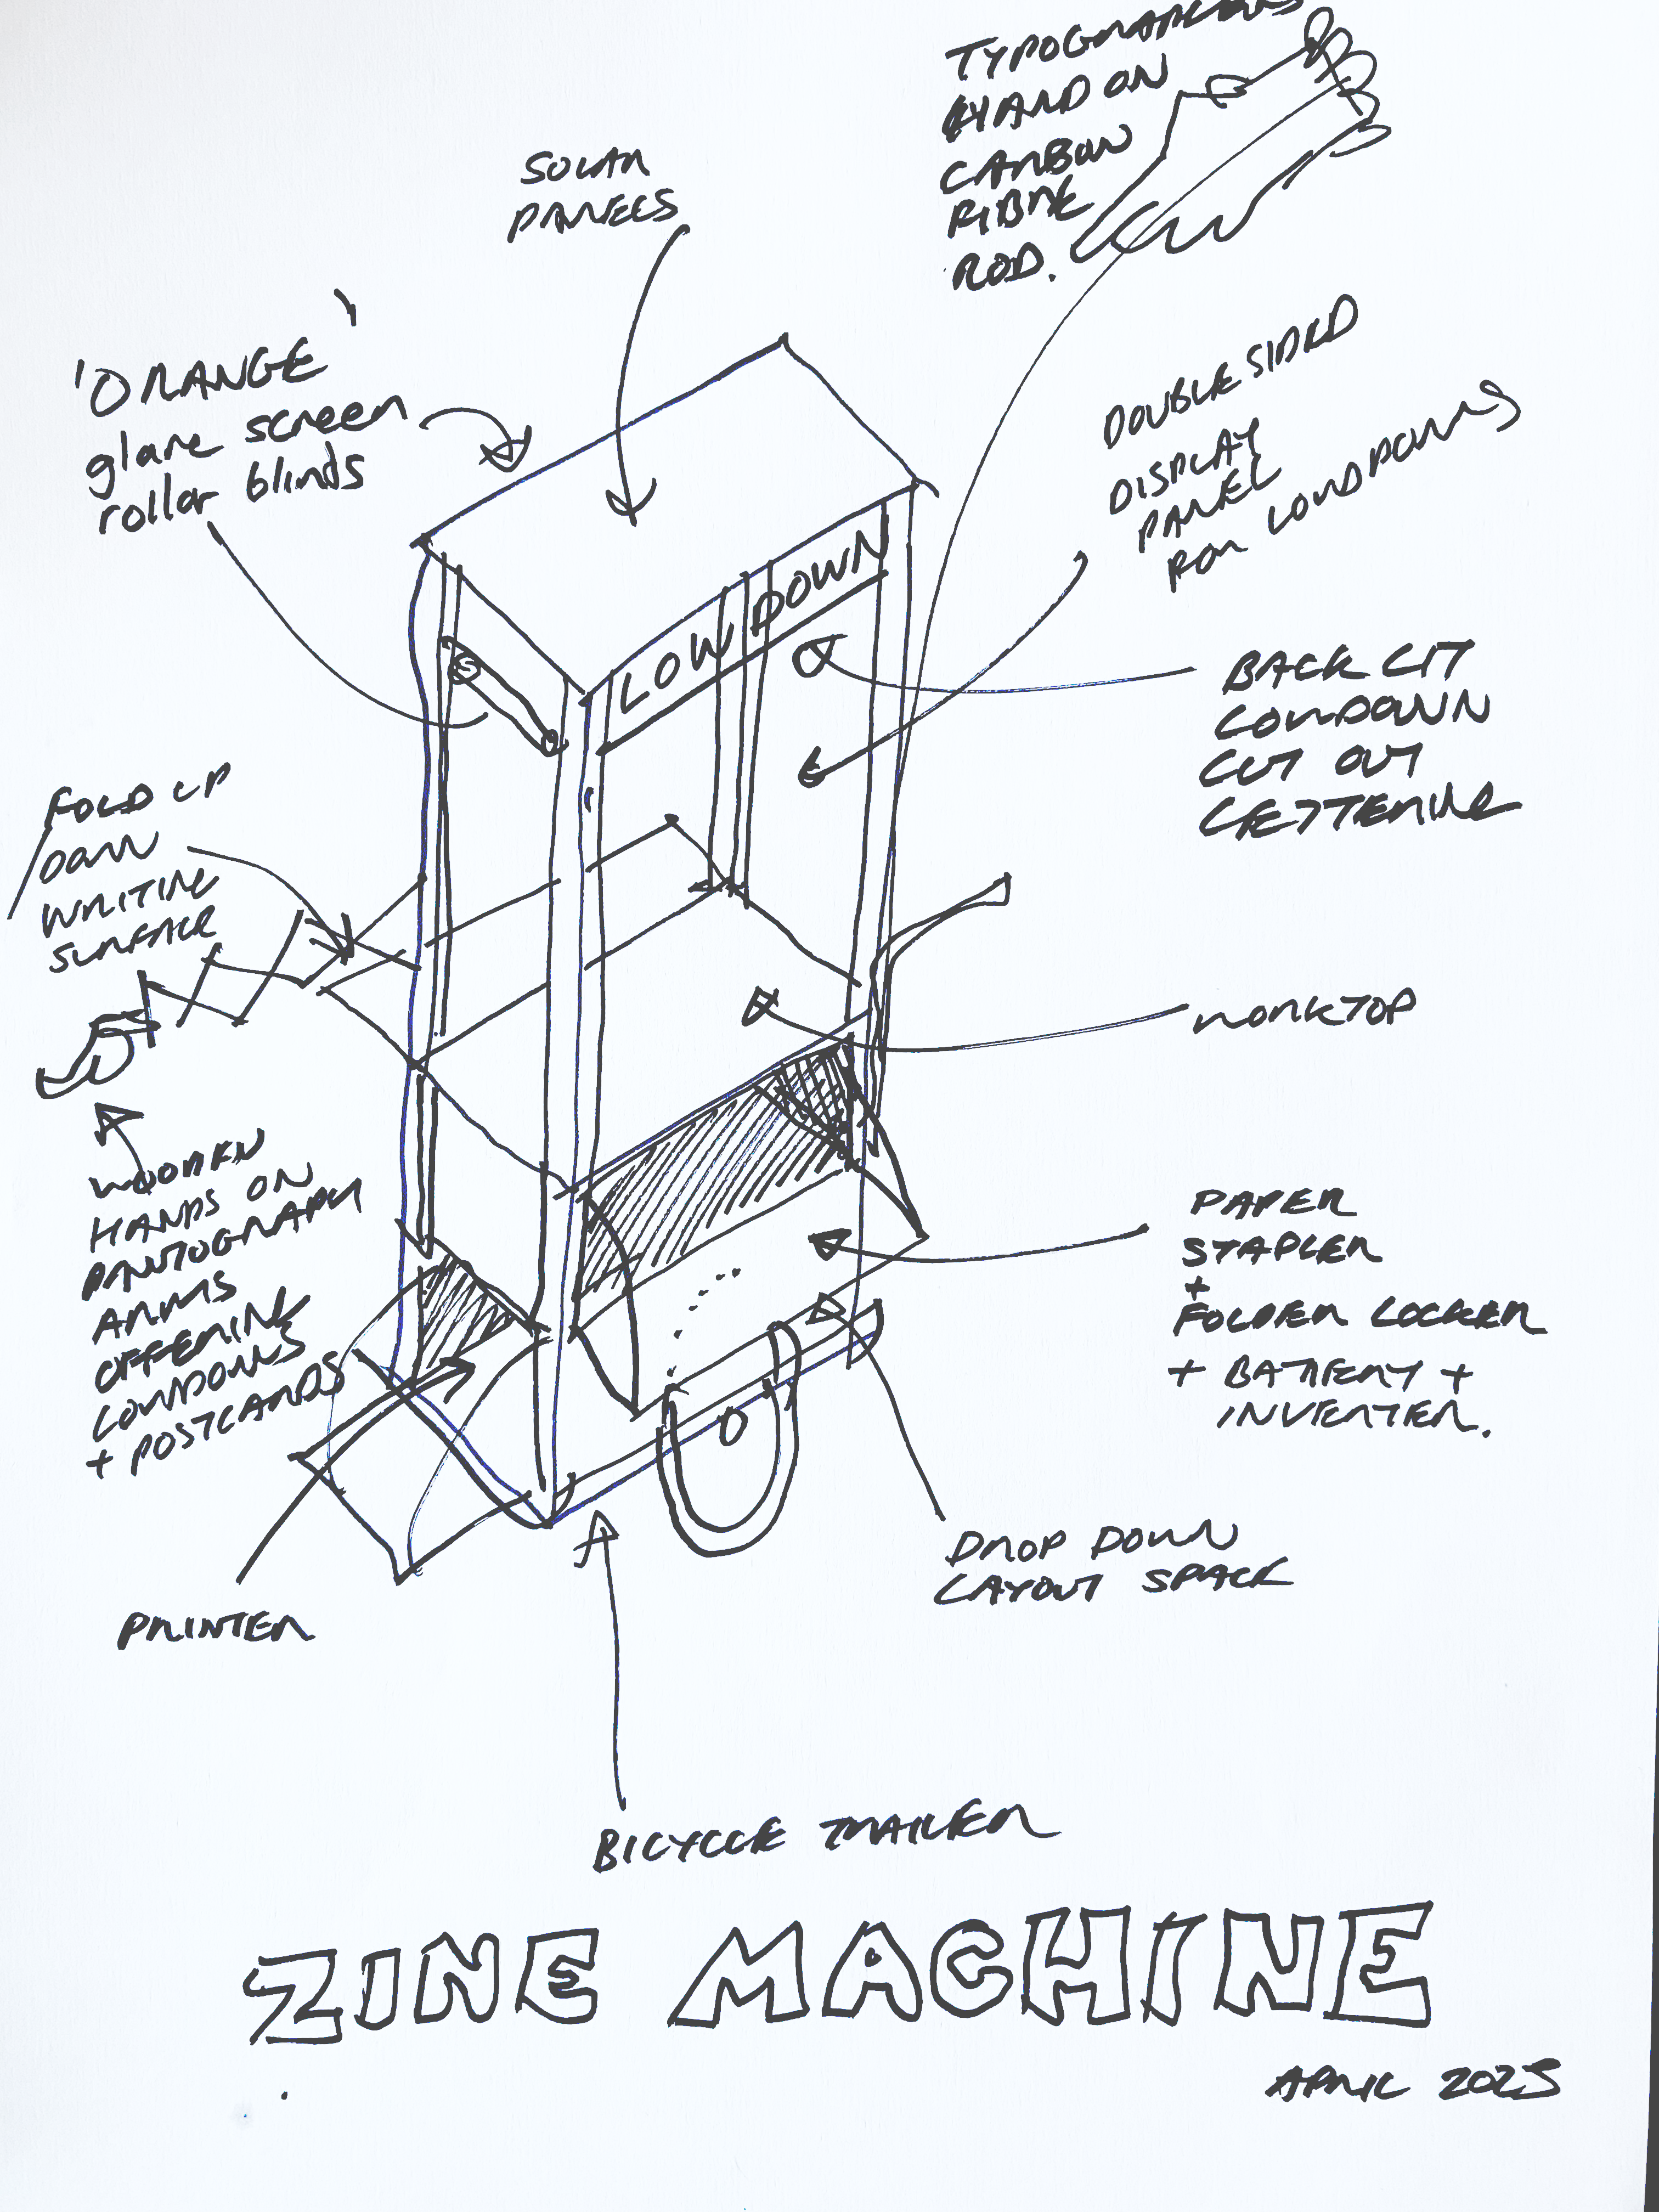 TYPOGRAPHERS
HAND ON
CARBON
FIBRE
ROD.
SOLAR
PANELS
'ORANGE'
glare screen
roller blinds
DOUBLE SIDED
DISPLAY
PANEL
FOR LOWDOWNS
LOWDOWN
BACK LIT
LOWDOWN
CUT OUT
LETTERING
FOLD UP
/DOWN
WRITING
SURFACE
WORKTOP
WOODEN
HANDS ON
PANTOGRAPH
ARMS
OFFERING
LOWDOWNS
+ POSTCARDS
PAPER
STAPLER
+
FOLDER LOCKER
+ BATTERY +
INVERTER.
DROP DOWN
LAYOUT SPACE
PRINTER
BICYCLE TRAILER
ZINE MACHINE
APRIL 2025